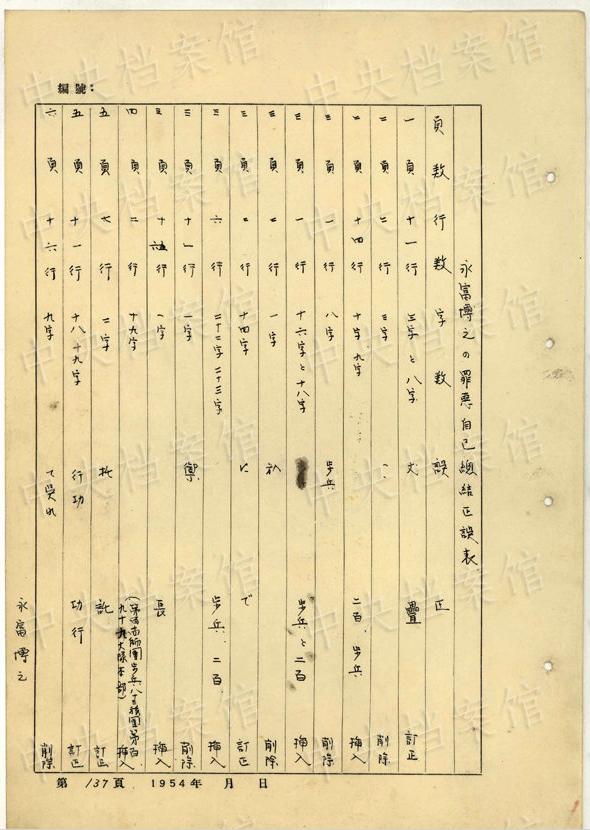 編號：
永富博之の罪悪自己総結正誤表
頁数 行数 字数 誤 正
一頁 十一行 三字と八字 文 疊 訂正
二頁 二行 三字 削除
二頁 十四行 十字 九字 二百、歩兵 挿入
三頁 一行 八字 歩兵 削除
三頁 一行 十六字と十八字 歩兵と二百 挿入
三頁 二行 一字 削除
三頁 二行 十四字 に で 訂正
三頁 六行 二十二字 二十三字 歩兵、二百 挿入
三頁 十一行 一字 禦 削除
三頁 行 一字 長 挿入
四頁 二行 十九字 挿入
五頁 行 二字 托 託 訂正
五頁 十一行 十八 十九字 行功 功行 訂正
六頁 十六行 九字 て 削除
永富博之
第 137 頁 1954年 月 日
中央档案馆